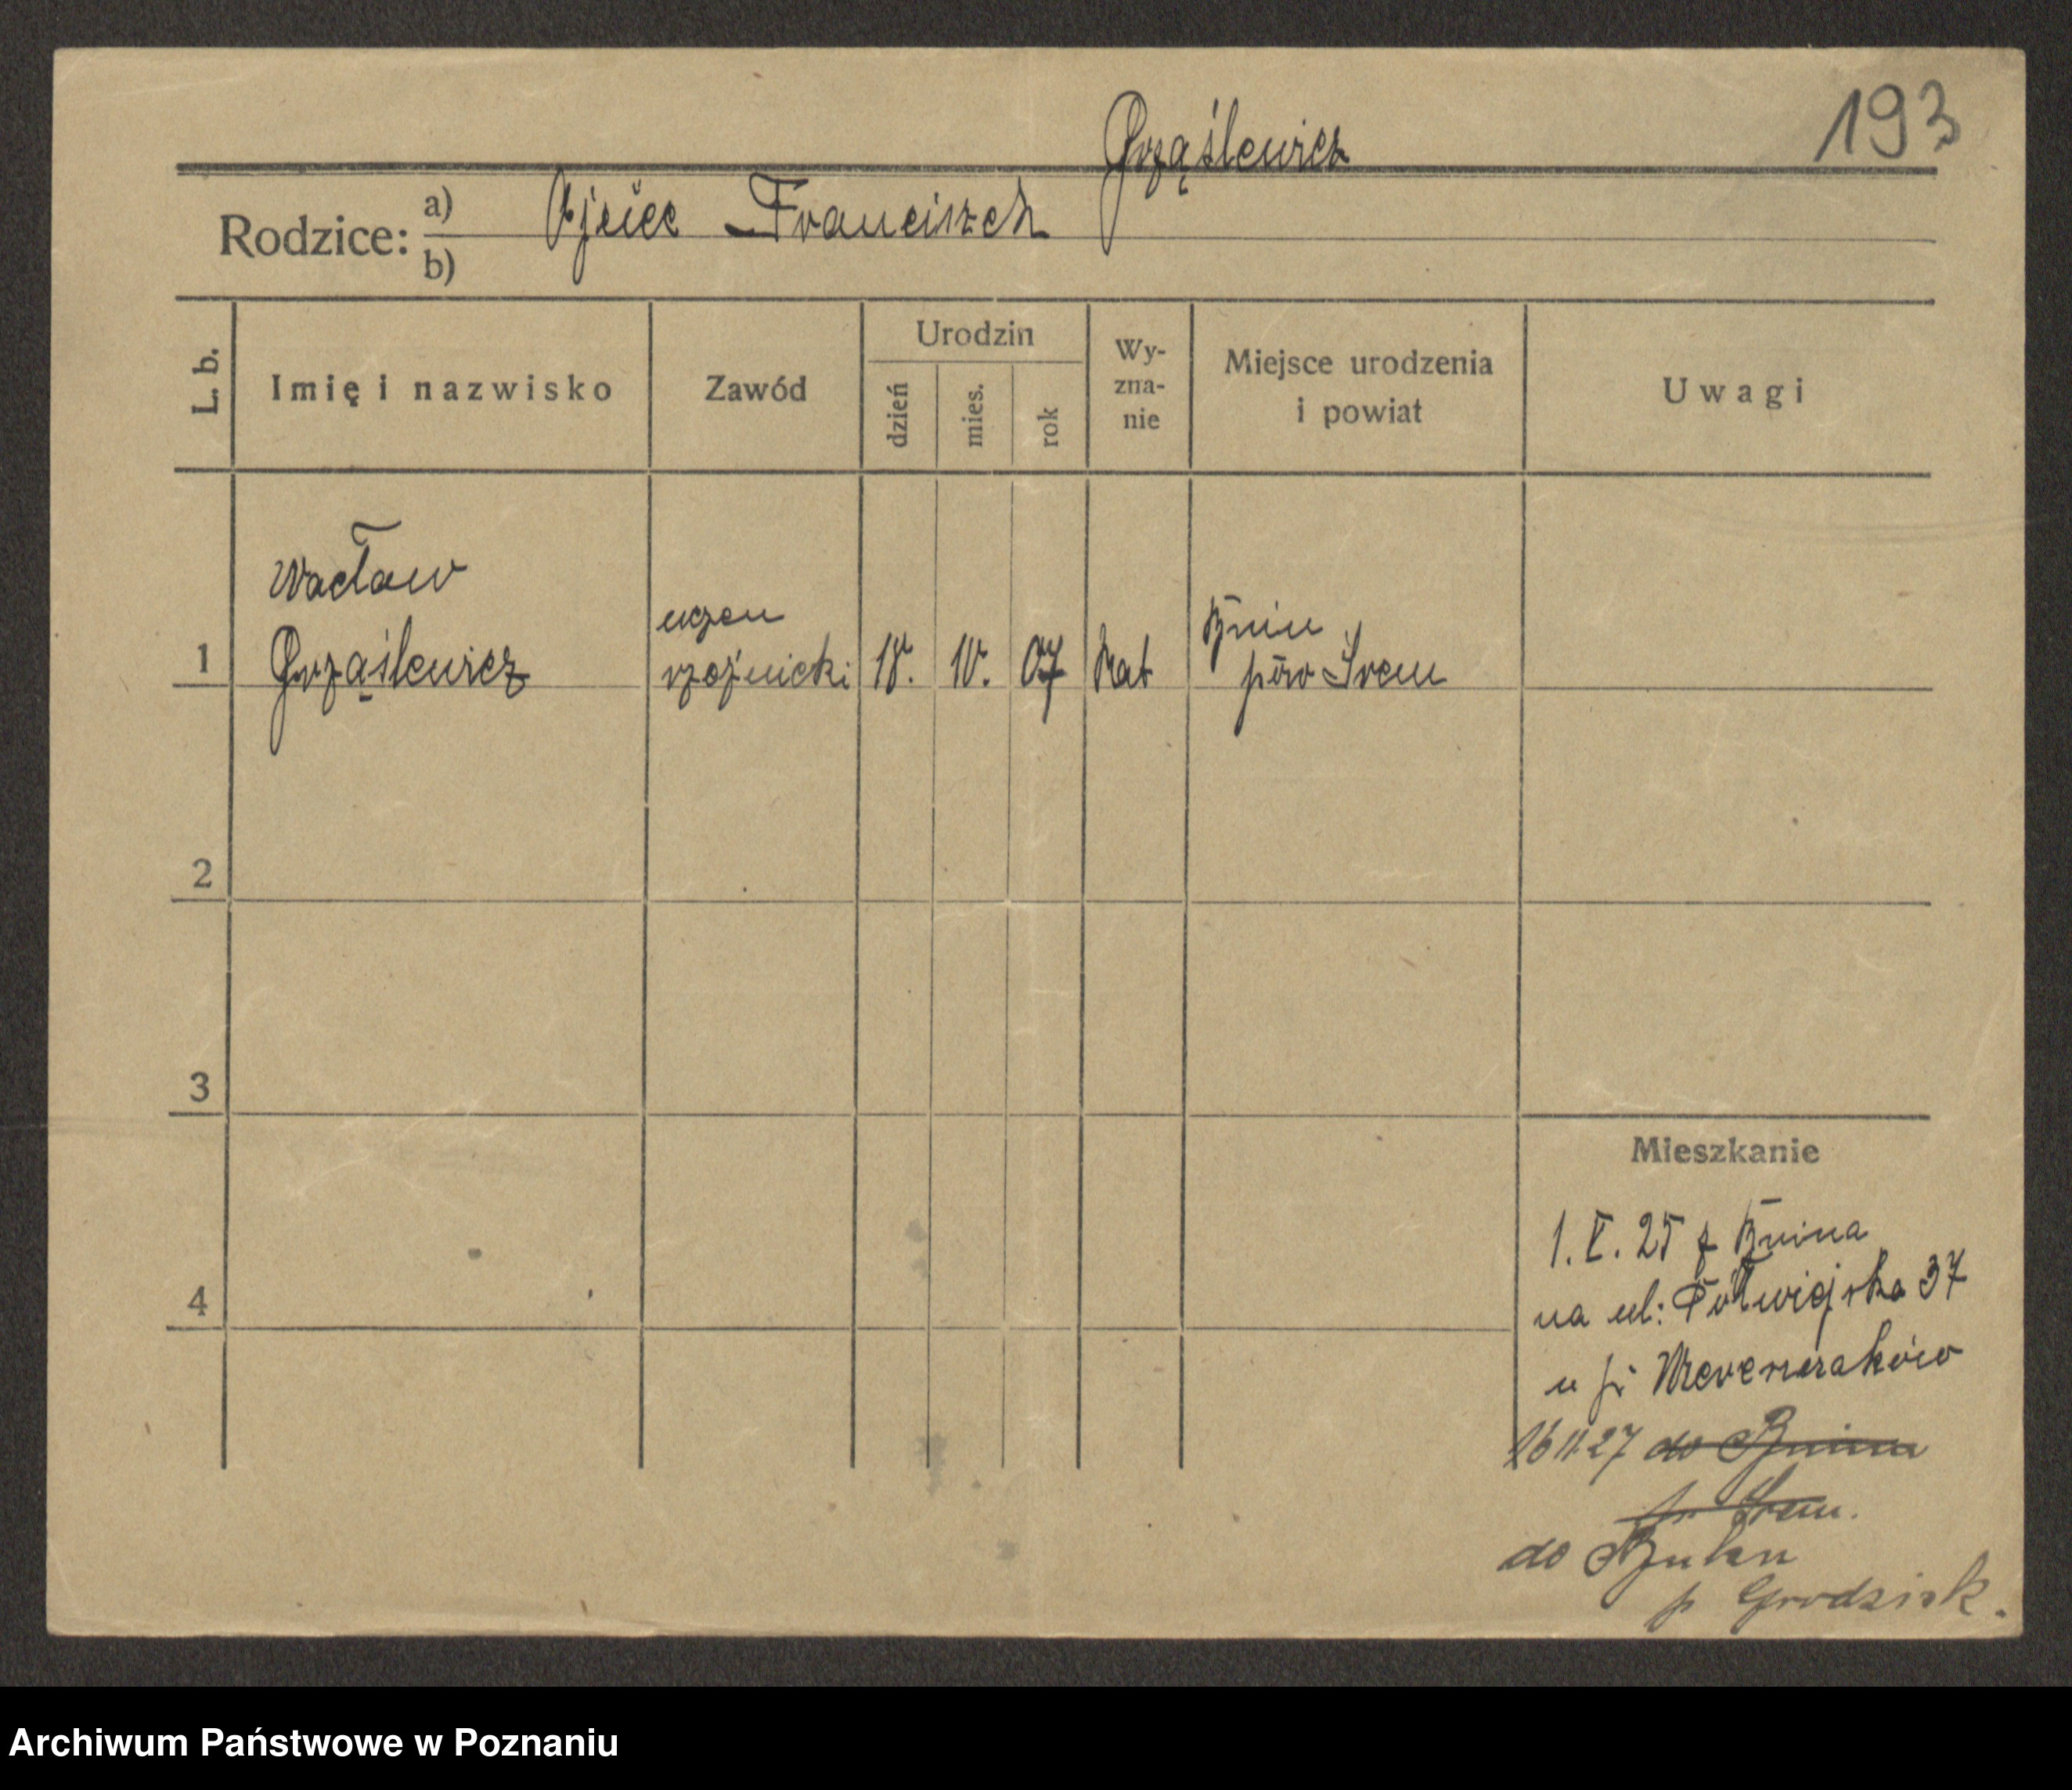 193
Grząślewicz
Rodzice: a) Ojciec Franciszek
b)
L. b.
Imię i nazwisko
Zawód
Urodzin
dzień
mies.
rok
Wy-
zna-
nie
Miejsce urodzenia
i powiat
Uwagi
Wacław
1 Grząślewicz
uczeń
rzeźnicki
18. 10. 07 Kat
Bnin
pow Śrem
2
3
4
Mieszkanie
1. V. 25 z Bnina
na ul: Półwiejska 37
u p:
16 11 27 do Bnina
p. Śrem.
do Buku
p Grodzisk.
Archiwum Państwowe w Poznaniu